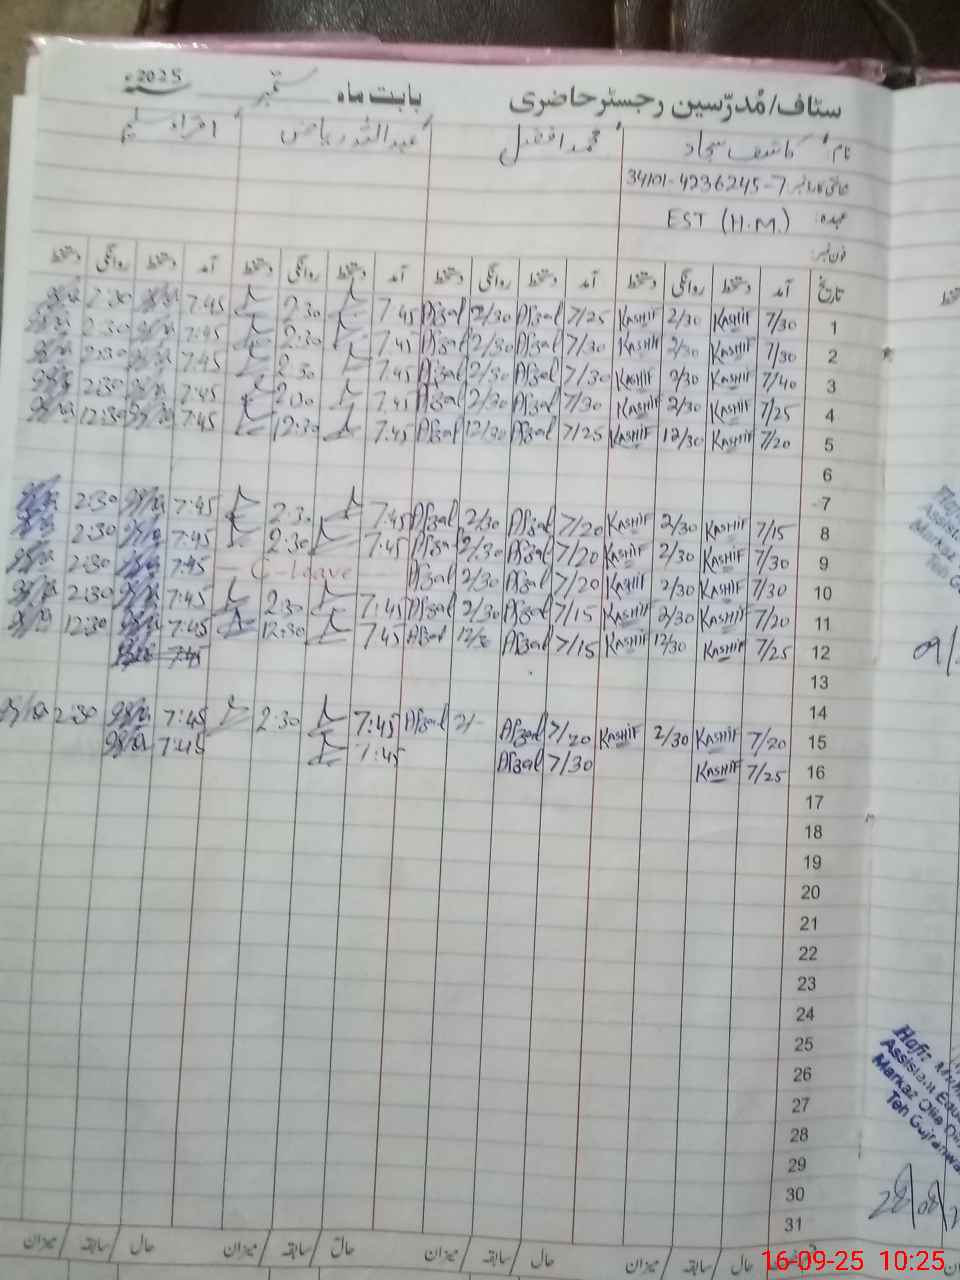 سٹاف/مُدرّسین رجسٹر حاضری بابت ماہ ستمبر 2025ء
نام: کاشف سجاد محمد افضل عبداللہ ریاض اقراء سلیم
34101-4236245-7
عہدہ: EST (H.M.)
فون نمبر:
تاریخ آمد دستخط روانگی دستخط آمد دستخط روانگی دستخط آمد دستخط روانگی دستخط آمد دستخط روانگی دستخط
1 7/30 KASHIF 2/30 KASHIF 7/25 Afzal 2/30 Afzal 7:45 2:30 7:45 2:30
2 7/30 KASHIF 2/30 KASHIF 7/30 Afzal 2/30 Afzal 7:45 2:30 7:45 2:30
3 7/40 KASHIF 2/30 KASHIF 7/30 Afzal 2/30 Afzal 7:45 2:30 7:45 2:30
4 7/25 KASHIF 2/30 KASHIF 7/30 Afzal 2/30 Afzal 7:45 2:30 7:45 2:30
5 7/20 KASHIF 12/30 KASHIF 7/25 Afzal 12/30 Afzal 7:45 12:30 7:45 12:30
6
7
8 7/15 KASHIF 2/30 KASHIF 7/20 Afzal 2/30 Afzal 7:45 2:30 7:45 2:30
9 7/30 KASHIF 2/30 KASHIF 7/20 Afzal 2/30 Afzal 7:45 2:30 7:45 2:30
10 7/30 KASHIF 2/30 KASHIF 7/20 Afzal 2/30 Afzal C-leave 7:45 2:30
11 7/20 KASHIF 2/30 KASHIF 7/15 Afzal 2/30 Afzal 7:45 2:30 7:45 2:30
12 7/25 KASHIF 12/30 KASHIF 7/15 Afzal 12/30 Afzal 7:45 12:30 7:45 12:30
13 7:45
14
15 7/20 KASHIF 2/30 KASHIF 7/20 Afzal 2/- Afzal 7:45 2:30 7:45 2:30
16 7/25 KASHIF 7/30 Afzal 7:45 7:45
17
18
19
20
21
22
23
24
25
26
27
28
29
30
31
حال سابقہ میزان حال سابقہ میزان حال سابقہ میزان
Hafiz
Markaz
Teh Gujranwa
16-09-25 10:25